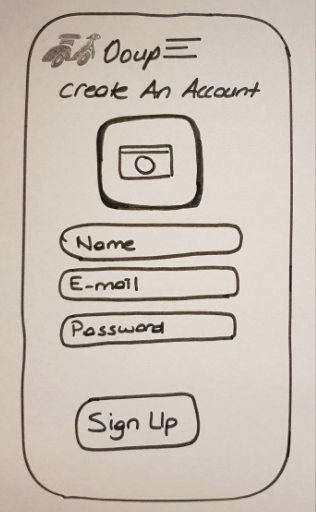 Ooup
Create An Account
Name
E-mail
Password
Sign Up